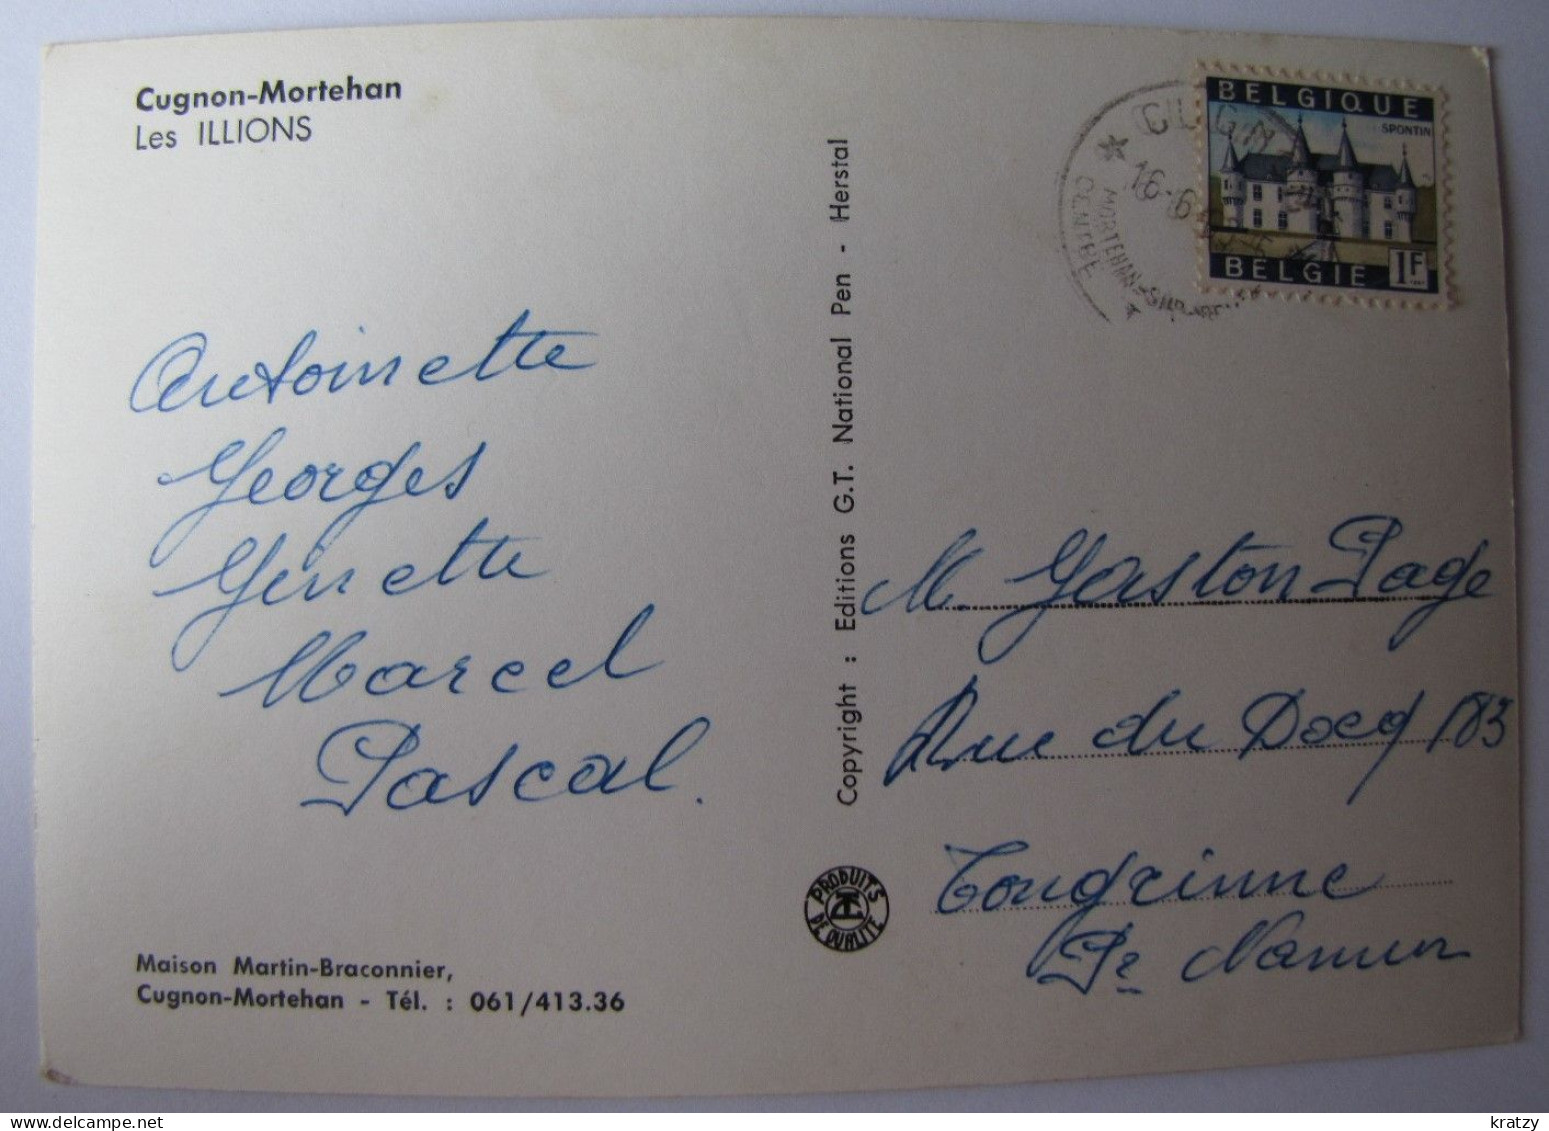 Cugnon-Mortehan
Les ILLIONS
Antoinette
Georges
Ginette
Marcel
Pascal.
Maison Martin-Braconnier,
Cugnon-Mortehan - Tél. : 061/413.36
Copyright : Editions G.T. National Pen - Herstal
PRODUITS
DE QUALITE
BELGIQUE
SPONTIN
BELGIE 1F
16-6
CENTRE
M. Gaston Page
Rue du Docq 183
Tongrinne
Pr Namur
kratzy